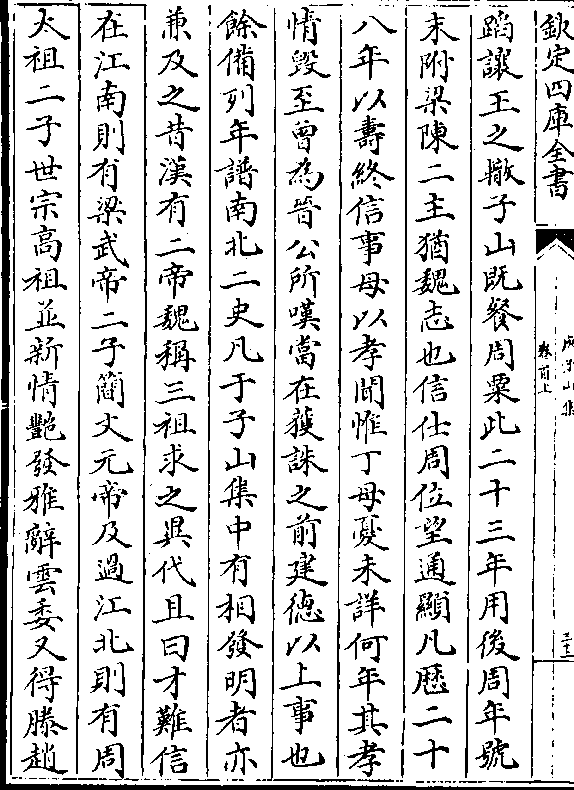 欽定四庫全書
庾子山集
卷首上
三十三
蹈讓王之轍子山既餐周粟此二十三年用後周年號
末附梁陳二主猶魏志也信仕周位望通顯凡歷二十
八年以壽終信事母以孝聞惟丁母憂未詳何年其孝
情毀至曾為晉公所嘆當在䕶誅之前建德以上事也
餘備列年譜南北二史凡于子山集中有相發明者亦
兼及之昔漢有二帝魏稱三祖求之異代且曰才難信
在江南則有梁武帝二子簡文元帝及過江北則有周
太祖二子世宗高祖並新情艷發雅辭雲委又得滕趙